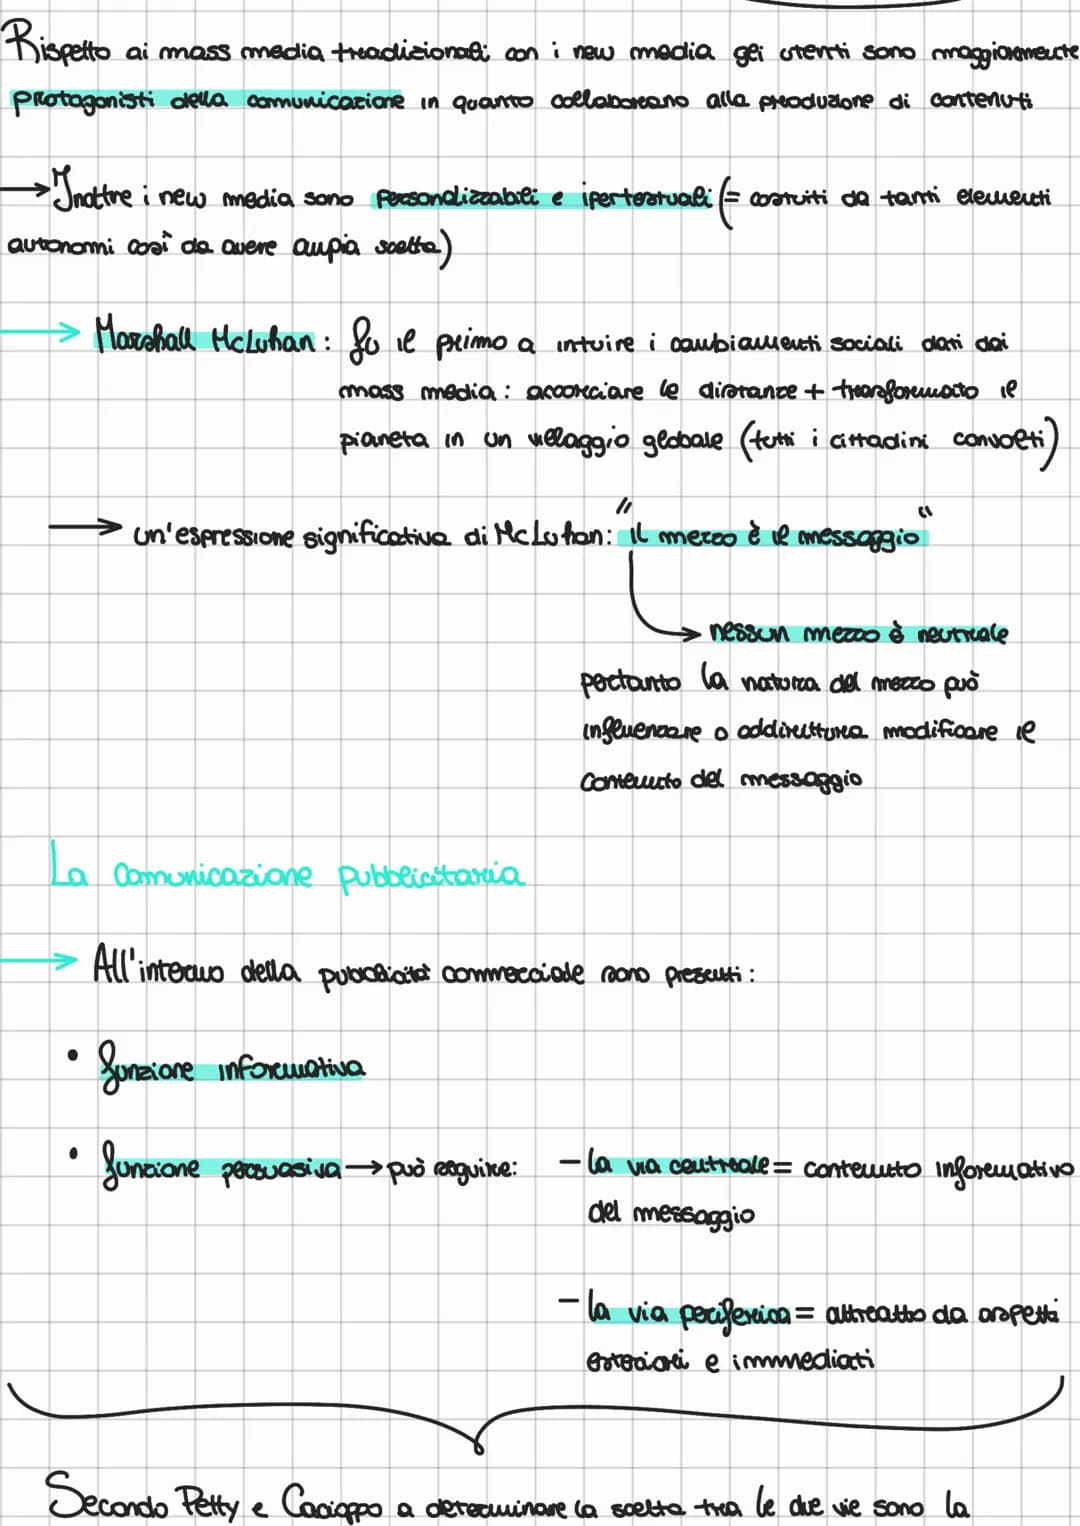 Rispetto ai mass media tradizionali con i new media gli utenti sono maggiormente
protagonisti della comunicazione in quanto collaborano alla produzione di contenuti
→ Inoltre i new media sono personalizzabili e ipertestuali (= costruiti da tanti elementi
autonomi così da avere ampia scelta)
→ Marshall McLuhan: fu il primo a intuire i cambiamenti sociali dati dai
mass media: accorciare le distanze + trasformato il
pianeta in un villaggio globale (tutti i cittadini convolti)
→ un'espressione significativa di McLuhan: "il mezzo è il messaggio"
→ nessun mezzo è neutrale
pertanto la natura del mezzo può
influenzare o addirittura modificare il
contenuto del messaggio
La comunicazione pubblicitaria
→ All'interno della pubblicità commerciale sono presenti:
• funzione informativa
• funzione persuasiva → può seguire: - la via centrale = contenuto informativo
del messaggio
- la via periferica = attratto da aspetti
esteriori e immediati
Secondo Petty e Cacioppo a determinare la scelta tra le due vie sono la